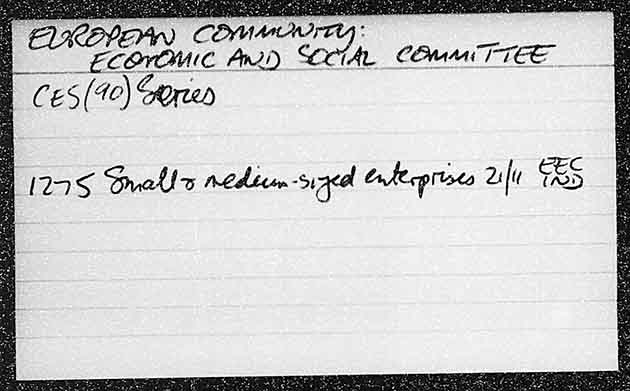 EUROPEAN COMMUNITY:
ECONOMIC AND SOCIAL COMMITTEE
CES(90) Series
1275 Small & medium-sized enterprises 21/11 EEC
IND